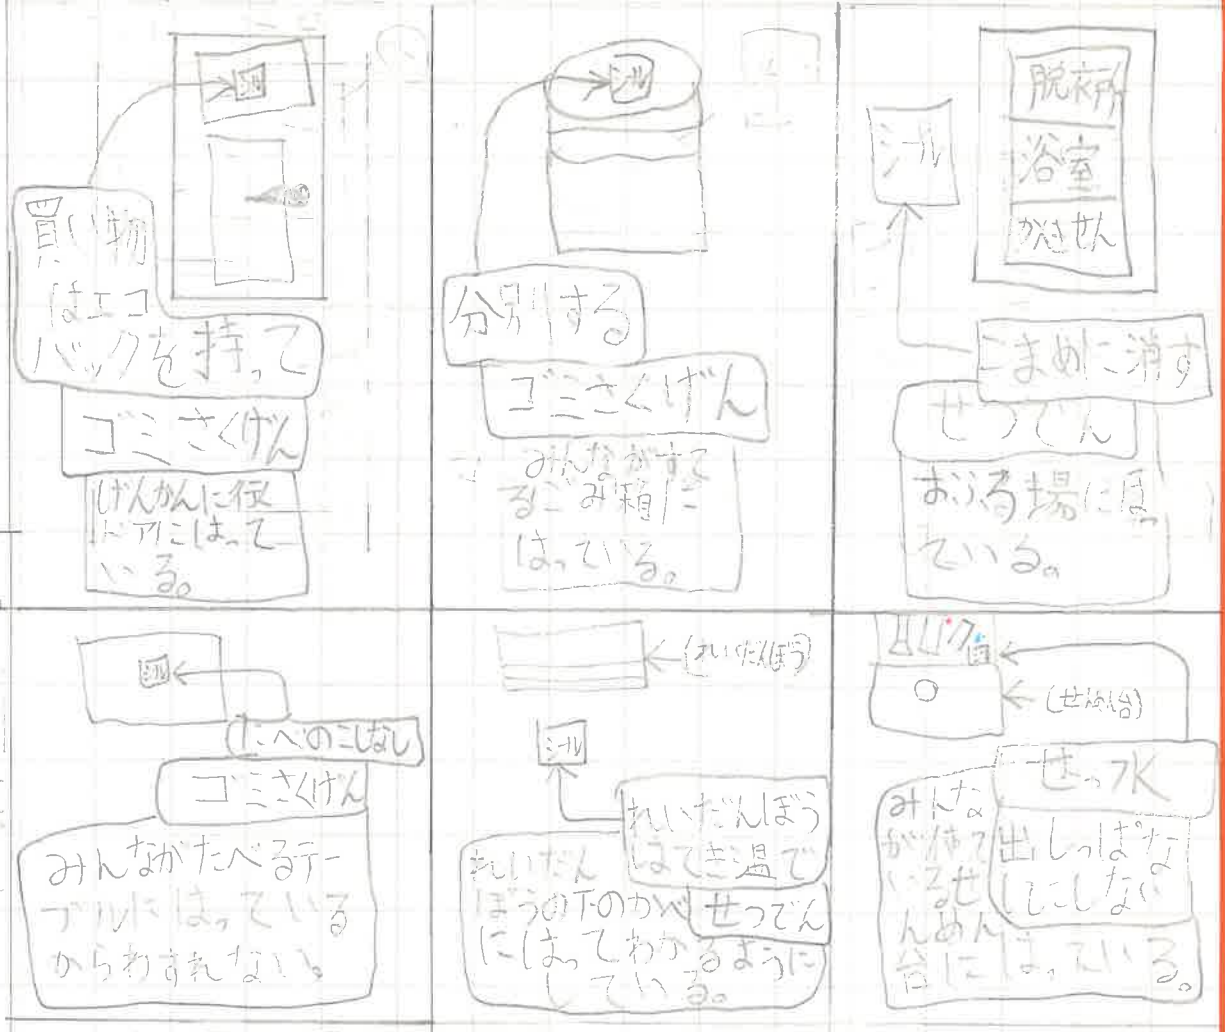 シール
買い物
はエコ
バックを持って
ゴミさくげん
げんかんに
ドアにはって
いる。
シール
分別する
ゴミさくげん
みんながすて
るごみ箱に
はっている。
脱衣所
浴室
かんきせん
シール
こまめに消す
せつでん
おふろ場にはっ
ている。
シール
たべのこしなし
ゴミさくげん
みんながたべるテー
ブルにはっている
からわすれない。
(れいだんぼう)
シール
れいだんぼう
はてき温で
せつでん
れいだん
ぼうの下のかべ
にはってわかるように
している。
(せんめん台)
せっ水
出しっぱな
しにしない
みんな
が使って
いるせ
んめん
台にはっている。